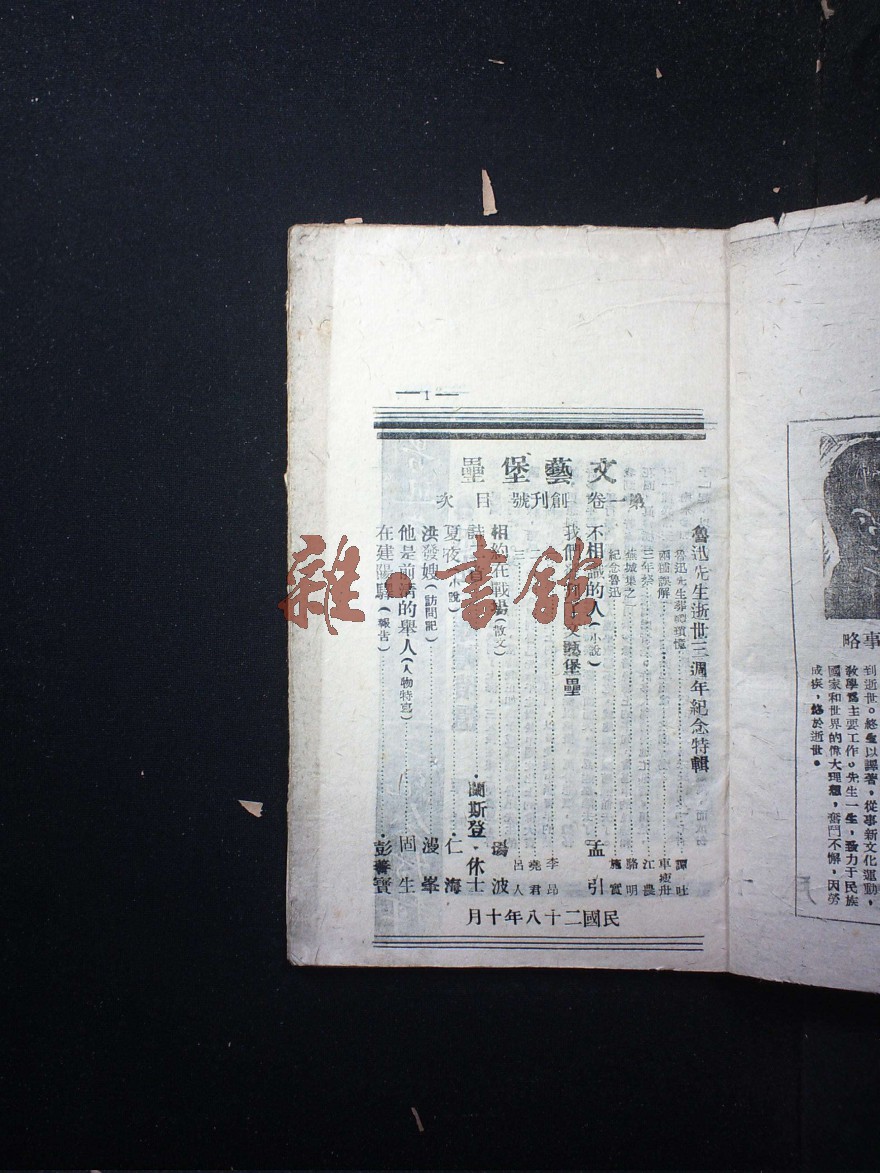 — 1 —
文藝堡壘
第一卷 創刊號 目次
魯迅先生逝世三週年紀念特輯
魯迅先生葬禮瑣憶 譚吐
兩種誤解 車瘦舟
三年祭 江農
蕪城集之一 駱明
紀念魯迅 施實
不相識的人(小說) 孟引
我們 文藝堡壘
一 李昂
二 堯君
三 呂人
相約在戰場(散文) 揚波
詩 首 蘭斯登·休士
夏夜(小說) 仁海
洪發嫂(訪問記) 漫峯
他是前清的舉人(人物特寫) 固生
在建陽驛(報告) 彭善寶
民國二十八年十月
事略
到逝世。終生以譯著,從事新文化運動,
教學爲主要工作。先生一生,致力于民族
國家和世界的偉大理想,奮鬥不懈,因勞
成疾,終於逝世。
雜·書館